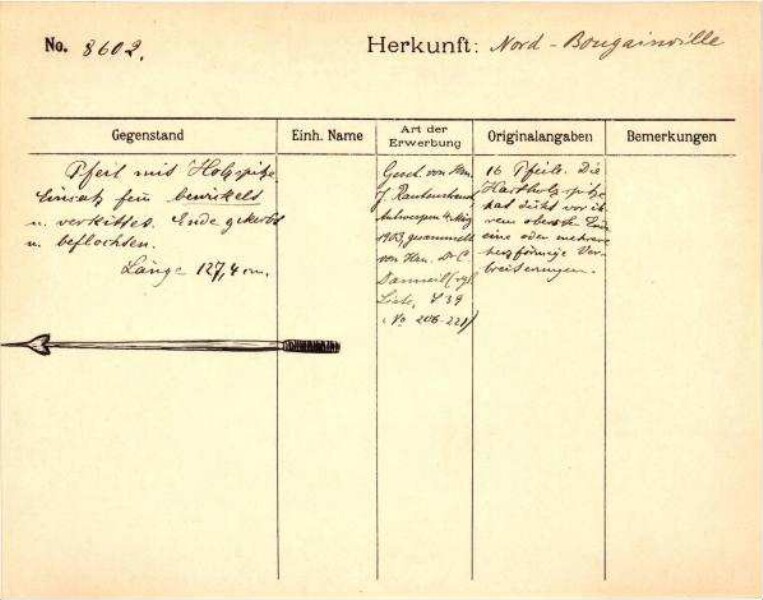 No. 8602.
Herkunft: Nord-Bougainville
Gegenstand
Einh. Name
Art der Erwerbung
Originalangaben
Bemerkungen
Pfeil mit Holzspitze
Einsatz fein bewickelt
u. verkittet. Ende gekerbt
u. beflochten.
Länge 127,4 cm.
Gesch. von Hrn.
J. Rautenstrauch
Antwerpen 4. März
1903, gesammelt
von Hrn. Dr C.
Danneil (vgl.
Liste, S 39
No 206-221)
16 Pfeile. Die
Hartholzspitze
hat dicht vor ih
rem oberste Ende
eine oder mehrere
herzförmige Ver-
breiterungen.